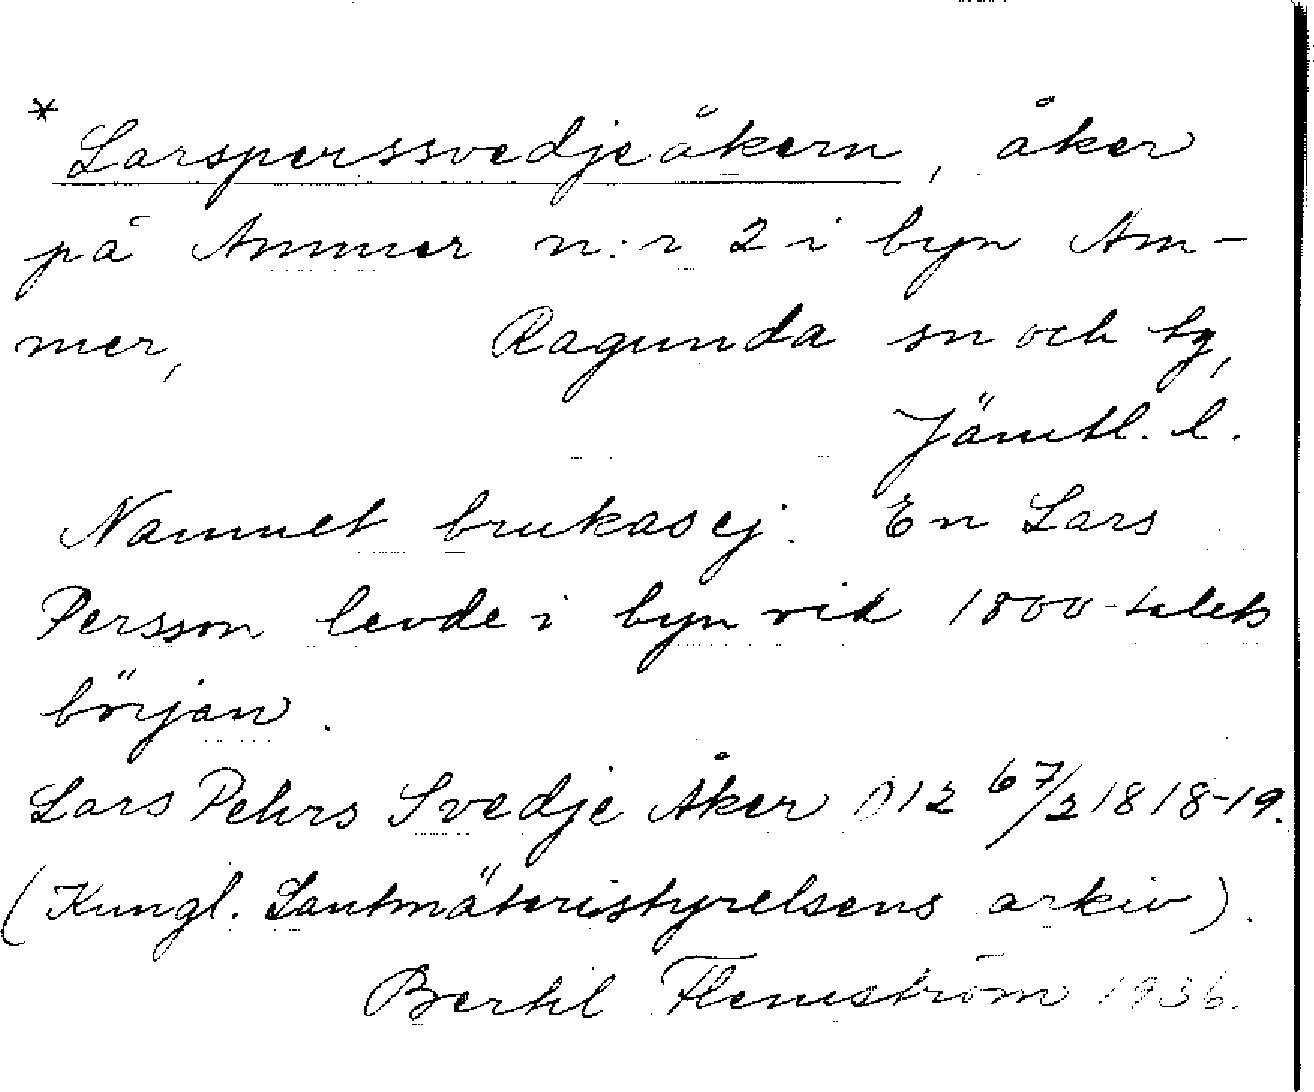 * Larsperssvedjeåkern, åker
på Ammer n:r 2 i byn Am-
mer, Ragunda sn och tg,
Jämtl. l.
Namnet brukas ej. En Lars
Persson levde i byn vid 1800-talets
början.
Lars Pehrs Svedje Åker D12 67/2 1818-19.
(Kungl. Lantmäteristyrelsens arkiv).
Bertil Flemström 1936.